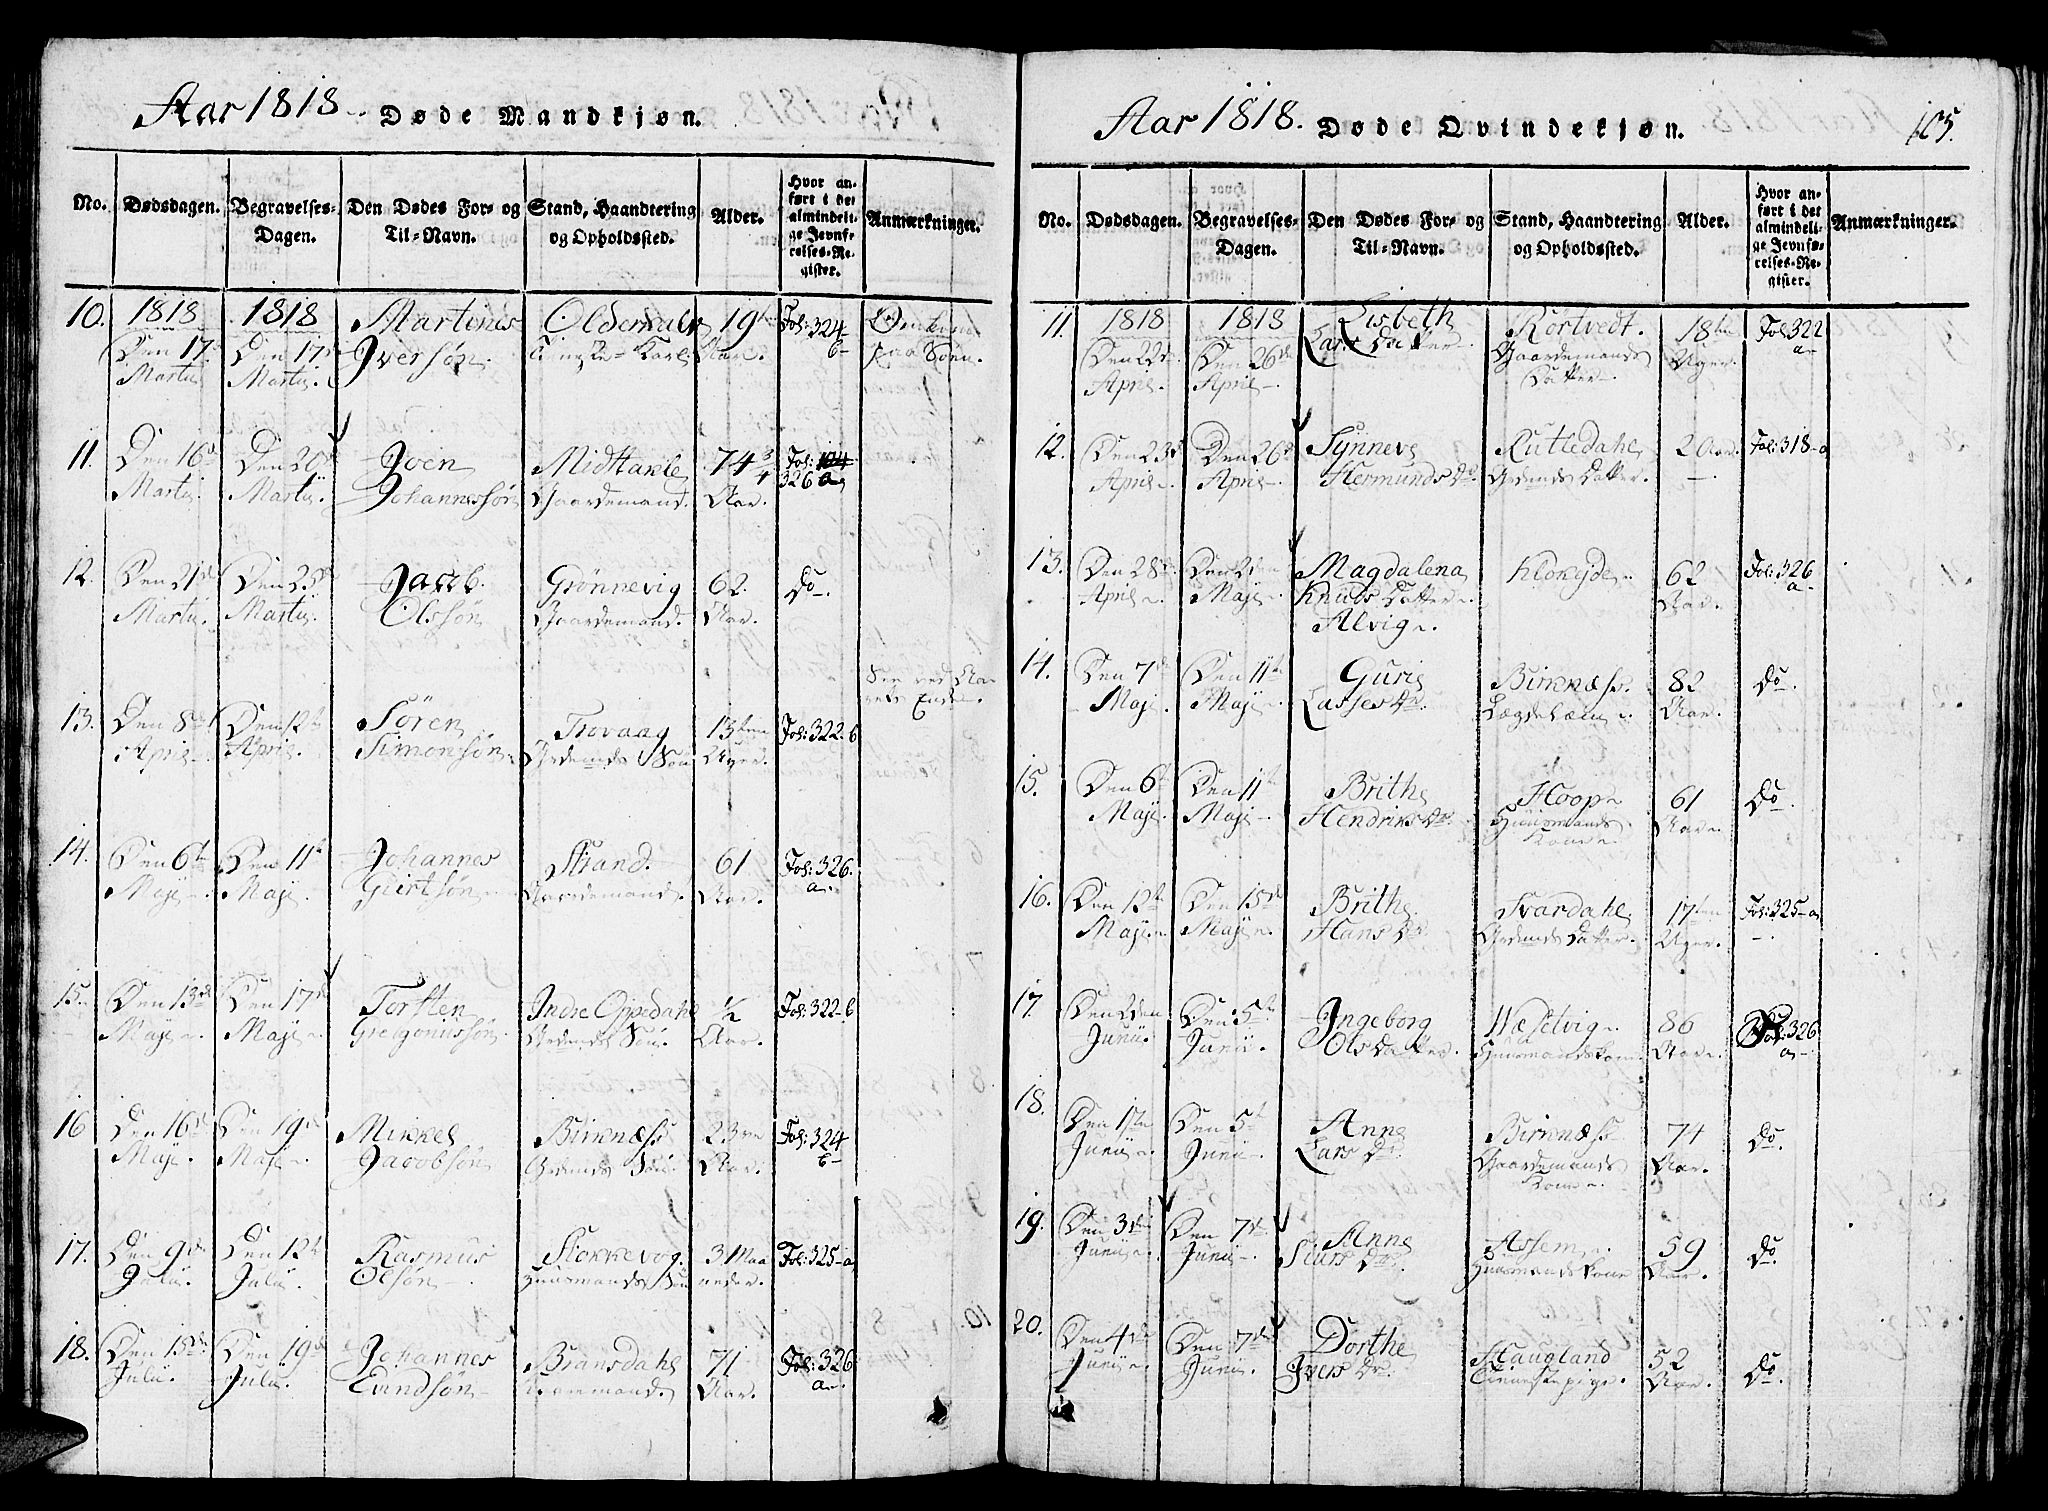 Aar 1818. Døde Mandkjøn.
No. Dødsdagen. Begravelses-Dagen. Den Dødes For- og Til-Navn. Stand, Haandtering og Opholdssted. Alder. Hvor anført i det almindelige Jevnførelses-Register. Anmærkninger.
10. 1818 1818 Martines
Den 17 Den 17 Iversøn. Tieneste-Karl 19 Aar. Fol: 324 b
Martii Martii.
11. Den 16 Den 20 Joen Midttakle 74 3/4 Fol:
Martii. Martii. Johannessøn Gaardemand. Aar. 326 a
12. Den 21 Den 25 Jacob. Grønnevig 62. Do.
Martii. Martii. Olssøn Gaardemand. Aar.
13. Den 8 Den 12 Søren Trovaag 13 Fol: 322-b
April. April. Simonsøn Søn Uger.
14. Den 6 Den 11 Johannes Strand. 61 Fol: 326.
Maji. Maji. Giertsøn Gaardemand. Aar. a.
15. Den 13 Den 17 Torsten Indre Oppedahl 1/2 Fol: 322-b
Maji. Maji. Gregoriussøn. Søn. Aar.
16 Den 16 Den 19 Mikkel Birknæss 23 Fol: 324
Maji. Maji. Jacobsøn Søn. Aar. b
17. Den 9 Den 12 Rasmus Stokkevog. 3 Maa Fol: 325-a
Julii Julii Olsøn Huusmands Søn neder.
18. Den 15 Den 19 Johannes Bransdahl 71 Fol: 326
Julii. Julii. Evindsøn Aar. a.
Aar 1818. Døde Qvindekjøn. 105.
No. Dødsdagen. Begravelses-Dagen. Den Dødes For- og Til-Navn. Stand, Haandtering og Opholdssted. Alder. Hvor anført i det almindelige Jevnførelses-Register. Anmærkninger.
11. 1818 1818 Lisbeth Rørtvedt. 18 Fol: 322
Den 22 Den 26 Lars Datter Gaardemands Uger. a
April April Datter
12. Den 23 Den 26 Synneve Ruttedahl 2 Aar. Fol: 318-a
April. April. Hermunds Dr. Datter.
13. Den 28 Den 2den Magdalena Klokejde 62 Fol: 326
April. Maji. Knuds Datter Aar. a
Alvig.
14. Den 7 Den 11 Guri Birknæss. 82 Do.
Maji. Maji. Lasses Dr. Lægdelem. Aar.
15. Den 6 Den 11 Brithe Hoop 61 Do.
Maji. Maji. Hendriks Dr. Huusmands Aar.
Kone
16. Den 12 Den 15 Brithe Svardahl 17 Fol: 325-a
Maji. Maji. Hans Dr. Datter. Uger.
17. Den 2den Den 5 Ingeborg 86 Fol: 326
Junii. Junii. Ols Datter. Huusmandskone Aar. a
18. Den 1 Den 5 Anne Birknæss 74 Do.
Junii. Junii. Lars Dr. Gaardemands Aar.
Kone.
19. Den 3 Den 7 Anne 59 Do.
Junii. Junii. Siurs Dr. Huusmandskone Aar.
20. Den 4 Den 7 Dorthe Haugland 52 Do.
Junii. Junii. Ivers Dr. Tienestepige. Aar.